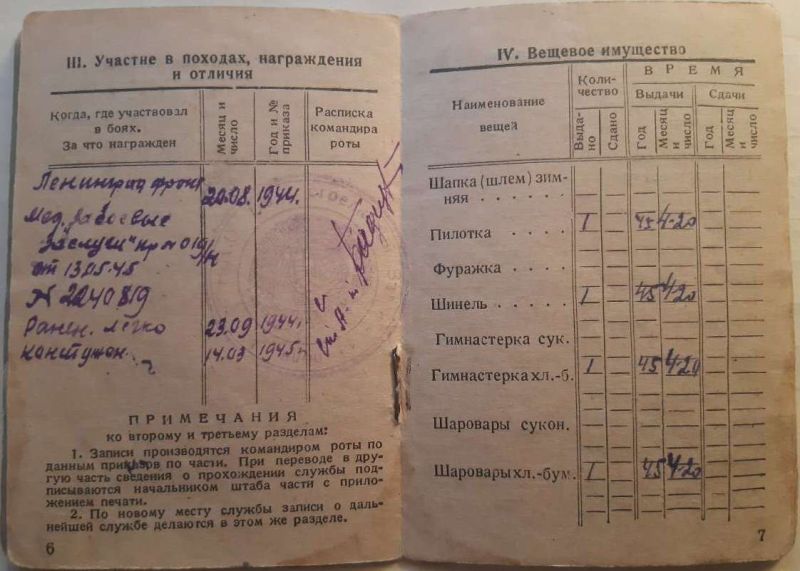 III. Участие в походах, награждения
и отличия
Когда, где участвовал
в боях.
За что награжден
Месяц и
число
Год и №
приказа
Расписка
командира
роты
Ленинград фронт 20.08. 1944г.
Мед. за боевые
заслуги" пр № 019/н
от 13.05.45
N 2240819
Ранен. легко 23.09 1944г.
Контужен. 14.03 1945г.
ПРИМЕЧАНИЯ
ко второму и третьему разделам:
1. Записи производятся командиром роты по
данным приказов по части. При переводе в дру-
гую часть сведения о прохождении службы под-
писываются начальником штаба части с прило-
жением печати.
2. По новому месту службы записи о даль-
нейшей службе делаются в этом же разделе.
6
IV. Вещевое имущество
Наименование
вещей
Коли-
чество
ВРЕМЯ
Выдачи
Сдачи
Выда-
но
Сдано
Год
Месяц
и
число
Год
Месяц
и
число
Шапка (шлем) зим-
няя . . . . . .
Пилотка . . . . 1 45 4-20
Фуражка . . . .
Шинель . . . . 1 45 4-20
Гимнастерка сук.
Гимнастерка хл.-б. 1 45 4-20
Шаровары сукон.
Шаровары хл.-бум. 1 45 4-20
7